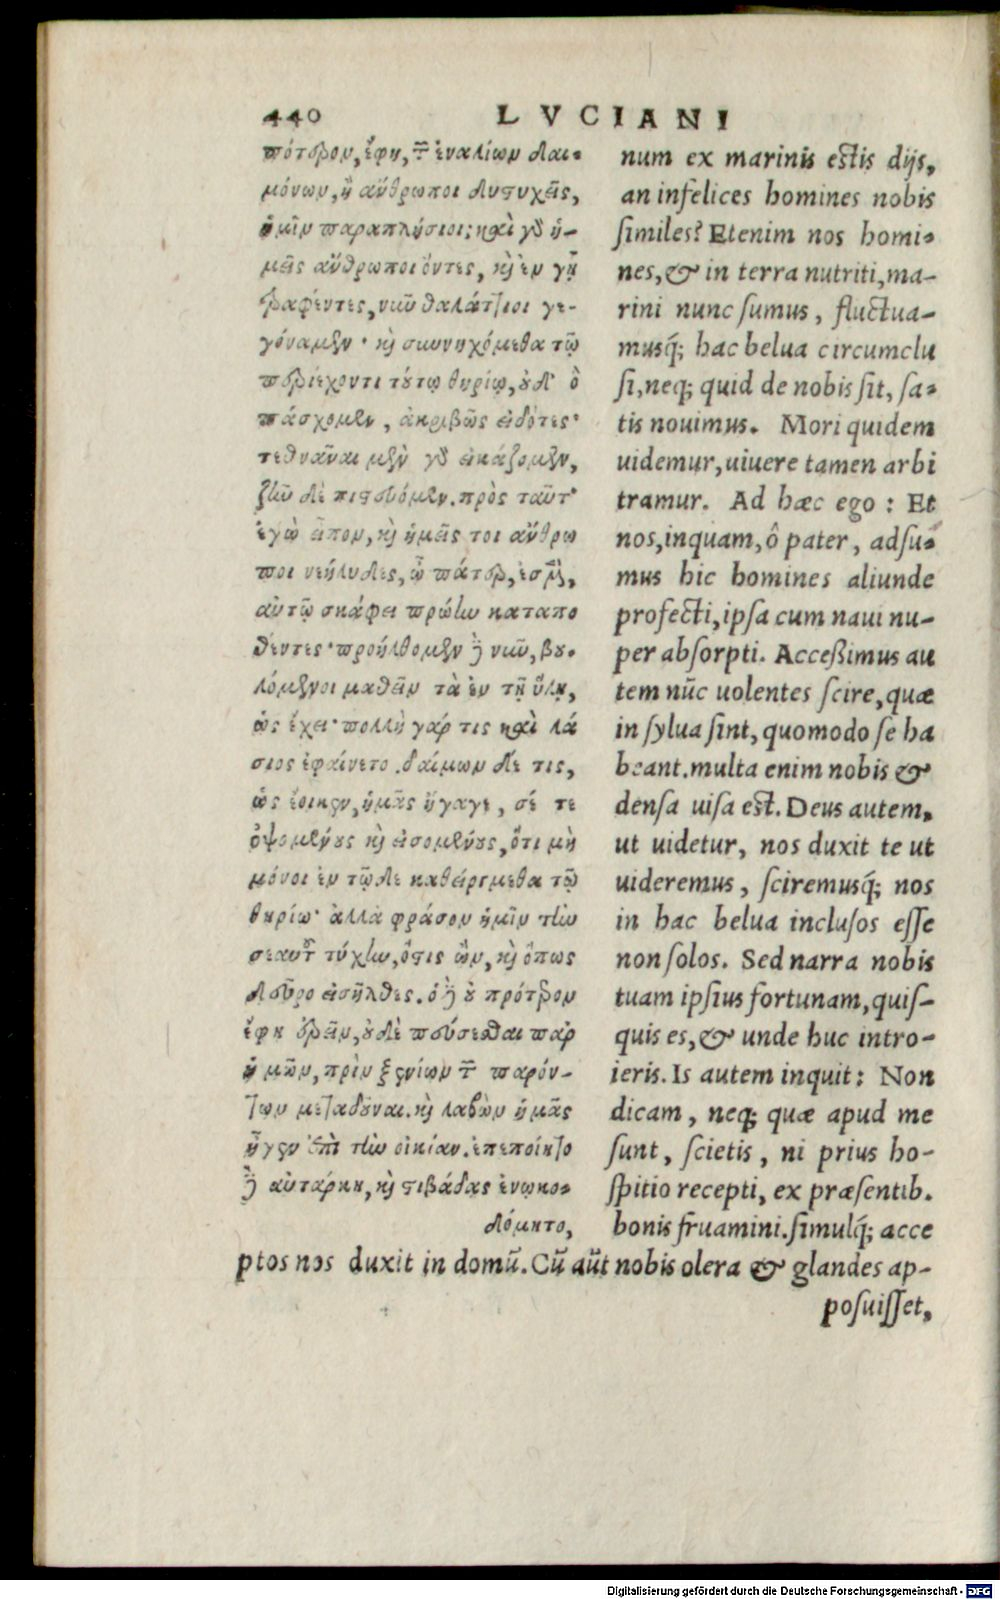 440 LVCIANI
πότερον, ἔφη, τῶν ἐναλίων δαι-
μόνων, ἢ ἄνθρωποι δυστυχεῖς,
ἡμῖν παραπλήσιοι; καὶ γὰρ ἡ-
μεῖς ἄνθρωποι ὄντες, καὶ ἐν γῇ
τραφέντες, νῦν θαλάττιοι γε-
γόναμεν· καὶ συννηχόμεθα τῷ
περιέχοντι τούτῳ θηρίῳ, οὐδ' ὃ
πάσχομεν, ἀκριβῶς εἰδότες·
τεθνᾶναι μὲν γὰρ εἰκάζομεν,
ζῆν δὲ πιστεύομεν. πρὸς ταῦτ'
ἐγὼ εἶπον, καὶ ἡμεῖς τοι ἄνθρω
ποι νεήλυδες, ὦ πάτερ, ἐσμὲν,
αὐτῷ σκάφει πρώην καταπο
θέντες· προήλθομεν δὲ νῦν, βου-
λόμενοι μαθεῖν τὰ ἐν τῇ ὕλῃ,
ὡς ἔχει· πολλὴ γάρ τις καὶ λά
σιος ἐφαίνετο. δαίμων δέ τις,
ὡς ἔοικεν, ἡμᾶς ἤγαγε, σέ τε
ὀψομένους καὶ εἰσομένους, ὅτι μὴ
μόνοι ἐν τῷδε καθείργμεθα τῷ
θηρίῳ· ἀλλὰ φράσον ἡμῖν τὴν
σεαυτοῦ τύχην, ὅστις ὢν, καὶ ὅπως
δεῦρο εἰσῆλθες. ὁ δὲ οὐ πρότερον
ἔφη ἐρεῖν, οὐδὲ πεύσεσθαι παρ
ἡμῶν, πρὶν ξενίων τῶν παρόν-
των μεταδοῦναι. καὶ λαβὼν ἡμᾶς
ἦγεν ἐπὶ τὴν οἰκίαν. ἐπεποίητο
δὲ αὐτάρκη, καὶ στιβάδας ἐνῳκο-
δόμητο,
num ex marinis estis dijs,
an infelices homines nobis
similes? Etenim nos homi-
nes, & in terra nutriti, ma-
rini nunc sumus, fluctua-
musq́; hac belua circumclu
si, neq; quid de nobis sit, sa-
tis nouimus. Mori quidem
uidemur, uiuere tamen arbi
tramur. Ad hæc ego : Et
nos, inquam, ô pater, adsu-
mus hic homines aliunde
profecti, ipsa cum naui nu-
per absorpti. Accessimus au
tem nūc uolentes scire, quæ
in sylua sint, quomodo se ha
beant. multa enim nobis &
densa uisa est. Deus autem,
ut uidetur, nos duxit te ut
uideremus, sciremusq́; nos
in hac belua inclusos esse
non solos. Sed narra nobis
tuam ipsius fortunam, quis-
quis es, & unde huc intro-
ieris. Is autem inquit: Non
dicam, neq; quæ apud me
sunt, scietis, ni prius ho-
spitio recepti, ex præsentib.
bonis fruamini. simulq́; acce
ptos nos duxit in domū. Cū aūt nobis olera & glandes ap-
posuisset,
Digitalisierung gefördert durch die Deutsche Forschungsgemeinschaft - DFG